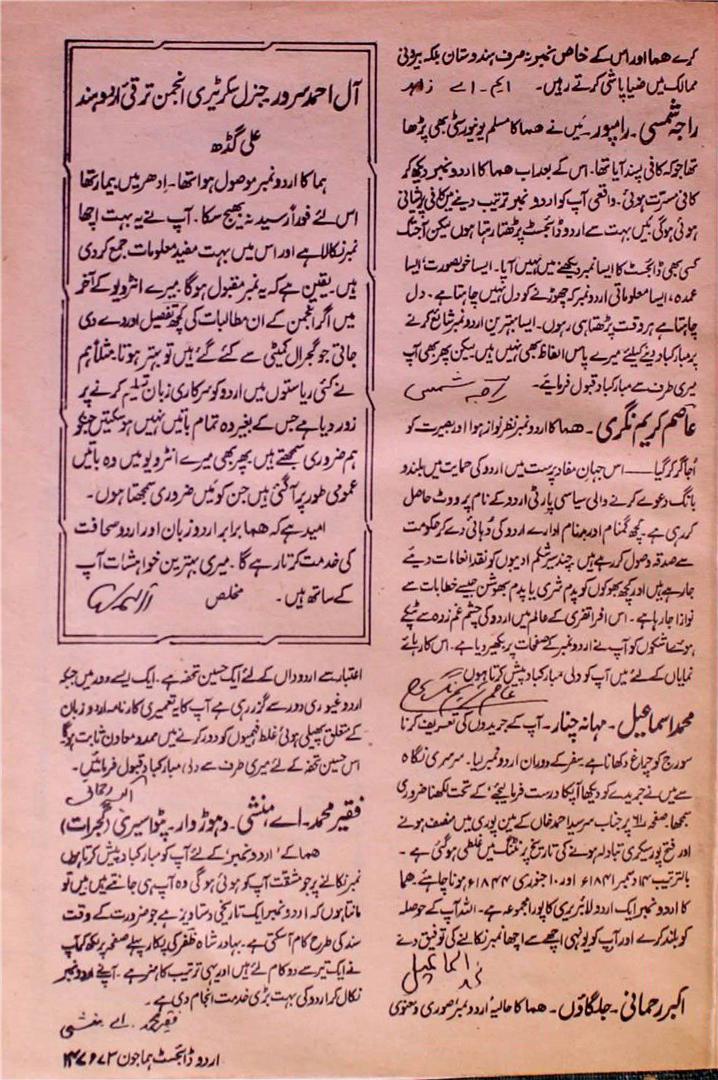 کرے ھما اور اس کے خاص نمبر نہ صرف ہندوستان بلکہ بیرونی
ممالک میں ضیا پاشی کرتے رہیں۔ ایم۔ اے زاہد
راجہ شمسی۔ رامپور۔ میں نے ھما کا مسلم یونیورسٹی بھی پڑھا
تھا جو کہ کافی پسند آیا تھا۔ اس کے بعد اب ھما کا اردو نمبر دیکھ کر
کافی مسرت ہوئی۔ واقعی آپ کو اردو نمبر ترتیب دینے میں کافی پریشانی
ہوئی ہوگی میں بہت سے اردو ڈائجسٹ پڑھتا رہتا ہوں لیکن آجتک
کسی بھی ڈائجسٹ کا ایسا نمبر دیکھنے میں نہیں آیا۔ ایسا خوبصورت، ایسا
عمدہ، ایسا معلوماتی اردو نمبر کہ چھوڑنے کو دل نہیں چاہتا ہے۔ دل
چاہتا ہے ہر وقت پڑھتا ہی رہوں۔ ایسا بہترین اردو نمبر شائع کرنے
پر مبارکباد دینے کیلئے میرے پاس الفاظ بھی نہیں ہیں لیکن پھر بھی آپ
میری طرف سے مبارکباد قبول فرمایئے۔ راجہ شمسی
عاصم کریم نگری۔ ھما کا اردو نمبر نظر نواز ہوا اور بصیرت کو
اُجاگر کر گیا۔۔۔ اس جہانِ مفاد پرست میں اردو کی حمایت میں بلند و
بانگ دعوے کرنے والی سیاسی پارٹی اردو کے نام پر ووٹ حاصل
کر رہی ہے۔ کچھ گمنام اور بدنام ادارے اردو کی دُہائی دے کر حکومت
سے صدقہ وصول کر رہے ہیں۔ چند پیر شکم ادیبوں کو نقد انعامات دیئے
جا رہے ہیں اور کچھ بھوکوں کو پدم شری یا پدم بھوشن جیسے خطابات سے
نوازا جا رہا ہے۔ اس افراتفری کے عالم میں اردو کی چشمِ غم زدہ سے ٹپکے
ہوئے اشکوں کو آپ نے اردو نمبر کے صفحات پر بکھیر دیا ہے۔ اس کارہائے
نمایاں کے لئے میں آپ کو دلی مبارکباد پیش کرتا ہوں۔
عاصم کریم نگری
محمد اسماعیل۔ مہانہ چنار۔ آپ کے جریدوں کی تعریف کرنا
سورج کو چراغ دکھانا ہے سفر کے دوران اردو نمبر لیا۔ سرسری نگاہ
سے میں نے جریدے کو دیکھا آپکا درست فرمالیجئے' کے تحت لکھنا ضروری
سمجھا۔ صفحہ پر جناب سرسید احمد خاں کے مین پوری میں منصف ہونے
اور فتح پور سیکری تبادلہ ہونے کی تاریخ پر پرنٹنگ میں غلطی ہوگئی ہے۔
بالترتیب ۲۴ دسمبر ۱۸۴۱ء اور ۱۰ جنوری ۱۸۴۴ء ہونا چاہئے۔ ھما
کا اردو نمبر ایک اردو لائبریری کا پورا مجموعہ ہے۔ اللہ آپ کے حوصلہ
کو بلند کرے اور آپ کو یونہی اچھے سے اچھا نمبر نکالنے کی توفیق دے
محمد اسماعیل
اکبر رحمانی۔ جلگاؤں۔ ھما کا حالیہ اردو نمبر صوری و معنوی
آل احمد سرور جنرل سکریٹری انجمن ترقی اردو ہند
علی گڈھ
ہما کا اردو نمبر موصول ہوا تھا۔ اِدھر میں بیمار تھا
اس لئے فوراً رسید نہ بھیج سکا۔ آپ نے یہ بہت اچھا
نمبر نکالا ہے اور اس میں بہت مفید معلومات جمع کر دی
ہیں۔ یقین ہے کہ یہ نمبر مقبول ہوگا۔ میرے انٹرویو کے آخر
میں اگر انجمن کے ان مطالبات کی کچھ تفصیل اور دے دی
جاتی جو گجرال کمیٹی سے کئے گئے ہیں تو بہتر ہوتا۔ مثلاً ہم
نے کئی ریاستوں میں اردو کو سرکاری زبان تسلیم کرنے پر
زور دیا ہے جس کے بغیر وہ تمام باتیں نہیں ہو سکتیں جنکو
ہم ضروری سمجھتے ہیں۔ پھر بھی میرے انٹرویو میں وہ باتیں
عمومی طور پر آگئی ہیں جن کو میں ضروری سمجھتا ہوں۔
امید ہے کہ ھما برابر اردو زبان اور اردو صحافت
کی خدمت کرتا رہے گا۔ میری بہترین خواہشات آپ
کے ساتھ ہیں۔ مخلص آل احمد سرور
اعتبار سے اردو داں کے لئے ایک حسین تحفہ ہے۔ ایک ایسے دور میں جبکہ
اردو عبوری دور سے گزر رہی ہے آپ کا یہ تعمیری کارنامہ اردو زبان
کے متعلق پھیلی ہوئی غلط فہمیوں کو دور کرنے میں ممد و معاون ثابت ہوگا
اس حسین تحفہ کے لئے میری طرف سے دلی مبارکباد قبول فرمائیں۔
اکبر رحمانی
فقیر محمد۔ اے منشی۔ دہوڑ دار۔ پٹواسیری (گجرات)
ھما کے 'اردو نمبر' کے لئے آپ کو مبارکباد پیش کرتا ہوں
نمبر نکالنے پر جو مشقت آپ کو ہوئی ہوگی وہ آپ ہی جانتے ہیں میں تو
مانتا ہوں کہ اردو نمبر ایک تاریخی دستاویز ہے جو ضرورت کے وقت
سند کی طرح کام آسکتی ہے۔ بہادر شاہ ظفر کی پکار پہلے صفحہ پر رکھ کر آپ
نے ایک تیر سے دو کام لئے ہیں اور یہی ترتیب کا ہنر ہے۔ آپنے اردو نمبر
نکال کر اردو کی بہت بڑی خدمت انجام دی ہے۔
فقیر محمد۔ اے منشی
اردو ڈائجسٹ ہما جون ۷۳ء ۱۴۷